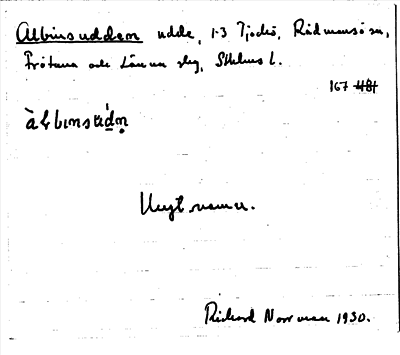 Albinsudden udde, 1:3 Tjockö, Rådmansö sn,
Frötuna och Länna slg, Sthlms l.
167 481
àlbinsúdn̥
Ungt namn.
Richard Norrman 1930.